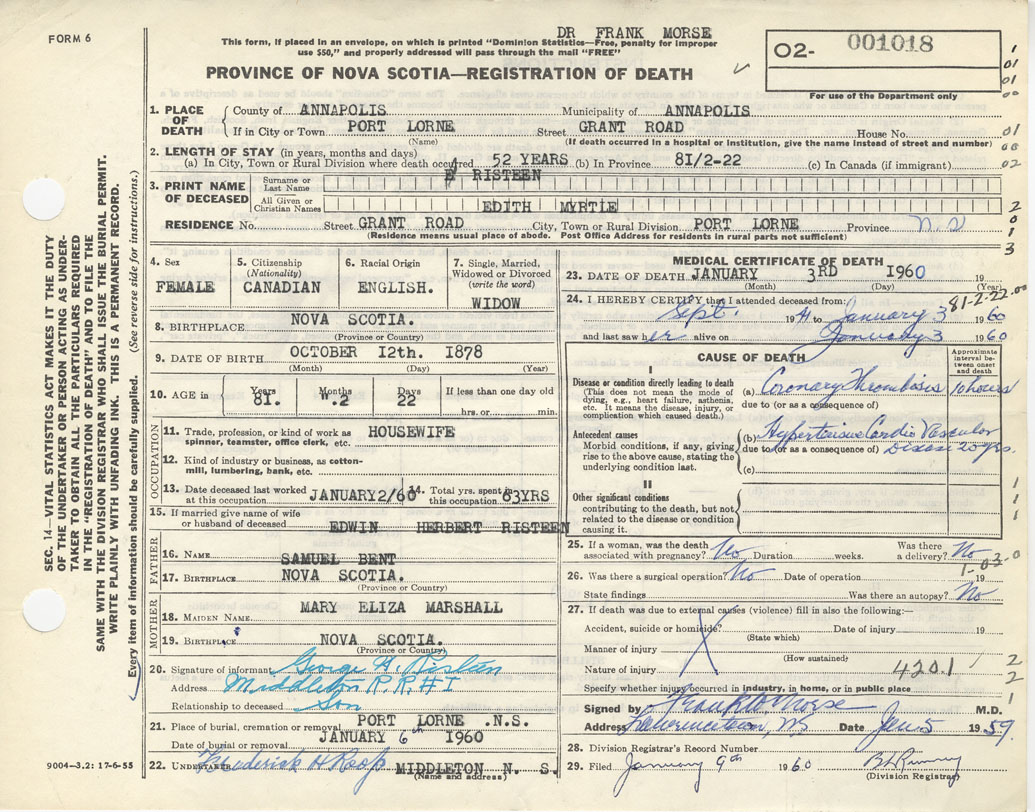 FORM 6
DR FRANK MORSE
This form, if placed in an envelope, on which is printed "Dominion Statistics—Free, penalty for improper
use $50," and properly addressed will pass through the mail "FREE"
PROVINCE OF NOVA SCOTIA—REGISTRATION OF DEATH
O2- 001018
For use of the Department only
1. PLACE OF DEATH
County of ANNAPOLIS Municipality of ANNAPOLIS
If in City or Town PORT LORNE Street GRANT ROAD House No.
(Name) (If death occurred in a hospital or institution, give the name instead of street and number)
2. LENGTH OF STAY (in years, months and days)
(a) In City, Town or Rural Division where death occurred 52 YEARS (b) In Province 81/2-22 (c) In Canada (if immigrant)
3. PRINT NAME OF DECEASED
Surname or Last Name RISTEEN
All Given or Christian Names EDITH MYRTLE
RESIDENCE No. Street GRANT ROAD City, Town or Rural Division PORT LORNE Province N.S
(Residence means usual place of abode. Post Office Address for residents in rural parts not sufficient)
4. Sex
FEMALE
5. Citizenship
(Nationality)
CANADIAN
6. Racial Origin
ENGLISH.
7. Single, Married,
Widowed or Divorced
(write the word)
WIDOW
8. BIRTHPLACE NOVA SCOTIA.
(Province or Country)
9. DATE OF BIRTH OCTOBER 12th. 1878
(Month) (Day) (Year)
10. AGE in Years 81. Months 2 Days 22 If less than one day old
hrs. or min.
OCCUPATION
11. Trade, profession, or kind of work as
spinner, teamster, office clerk, etc. HOUSEWIFE
12. Kind of industry or business, as cotton-
mill, lumbering, bank, etc.
13. Date deceased last worked
at this occupation JANUARY2/60
14. Total yrs. spent in
this occupation 63YRS
15. If married give name of wife
or husband of deceased EDWIN HERBERT RISTEEN
FATHER
16. NAME SAMUEL BENT
17. BIRTHPLACE NOVA SCOTIA.
(Province or Country)
MOTHER
18. MAIDEN NAME MARY ELIZA MARSHALL
19. BIRTHPLACE NOVA SCOTIA.
(Province or Country)
20. Signature of informant George H. Risteen
Address Middleton R.R.#1
Relationship to deceased Son
21. Place of burial, cremation or removal PORT LORNE .N.S.
Date of burial or removal JANUARY 6th 1960
22. UNDERTAKER Frederick H Roop MIDDLETON N. S.
(Name and address)
MEDICAL CERTIFICATE OF DEATH
23. DATE OF DEATH JANUARY 3RD 1960 19
(Month) (Day) (Year)
81-2-22.00
24. I HEREBY CERTIFY that I attended deceased from:
Sept. 19 to January 3 1960
and last saw her alive on January 3 1960
CAUSE OF DEATH
Approximate
interval be-
tween onset
and death
I
Disease or condition directly leading to death
(This does not mean the mode of
dying, e.g., heart failure, asthenia,
etc. It means the disease, injury, or
complication which caused death.)
(a) Coronary Thrombosis 10 hours
due to (or as a consequence of)
Antecedent causes
Morbid conditions, if any, giving
rise to the above cause, stating the
underlying condition last.
(b) Hypertensive Cardio Vascular
due to (or as a consequence of) Disease 20 yrs.
(c)
II
Other significant conditions
contributing to the death, but not
related to the disease or condition
causing it.
25. If a woman, was the death
associated with pregnancy? No Duration weeks. Was there
a delivery? No
26. Was there a surgical operation? No Date of operation 19
State findings Was there an autopsy? No
27. If death was due to external causes (violence) fill in also the following:—
Accident, suicide or homicide? Date of injury 19
(State which)
Manner of injury
(How sustained)
Nature of injury 420.1
Specify whether injury occurred in industry, in home, or in public place
Signed by Frank W Morse M.D.
Address Lawrencetown, NS Date Jan 5 1959.
28. Division Registrar's Record Number
29. Filed January 9th 1960
(Division Registrar)
9004—3.2: 17-6-55
SEC. 14—VITAL STATISTICS ACT MAKES IT THE DUTY
OF THE UNDERTAKER OR PERSON ACTING AS UNDER-
TAKER TO OBTAIN ALL THE PARTICULARS REQUIRED
IN THE "REGISTRATION OF DEATH" AND TO FILE THE
SAME WITH THE DIVISION REGISTRAR WHO SHALL ISSUE THE BURIAL PERMIT.
WRITE PLAINLY WITH UNFADING INK. THIS IS A PERMANENT RECORD.
Every item of information should be carefully supplied. (See reverse side for instructions.)